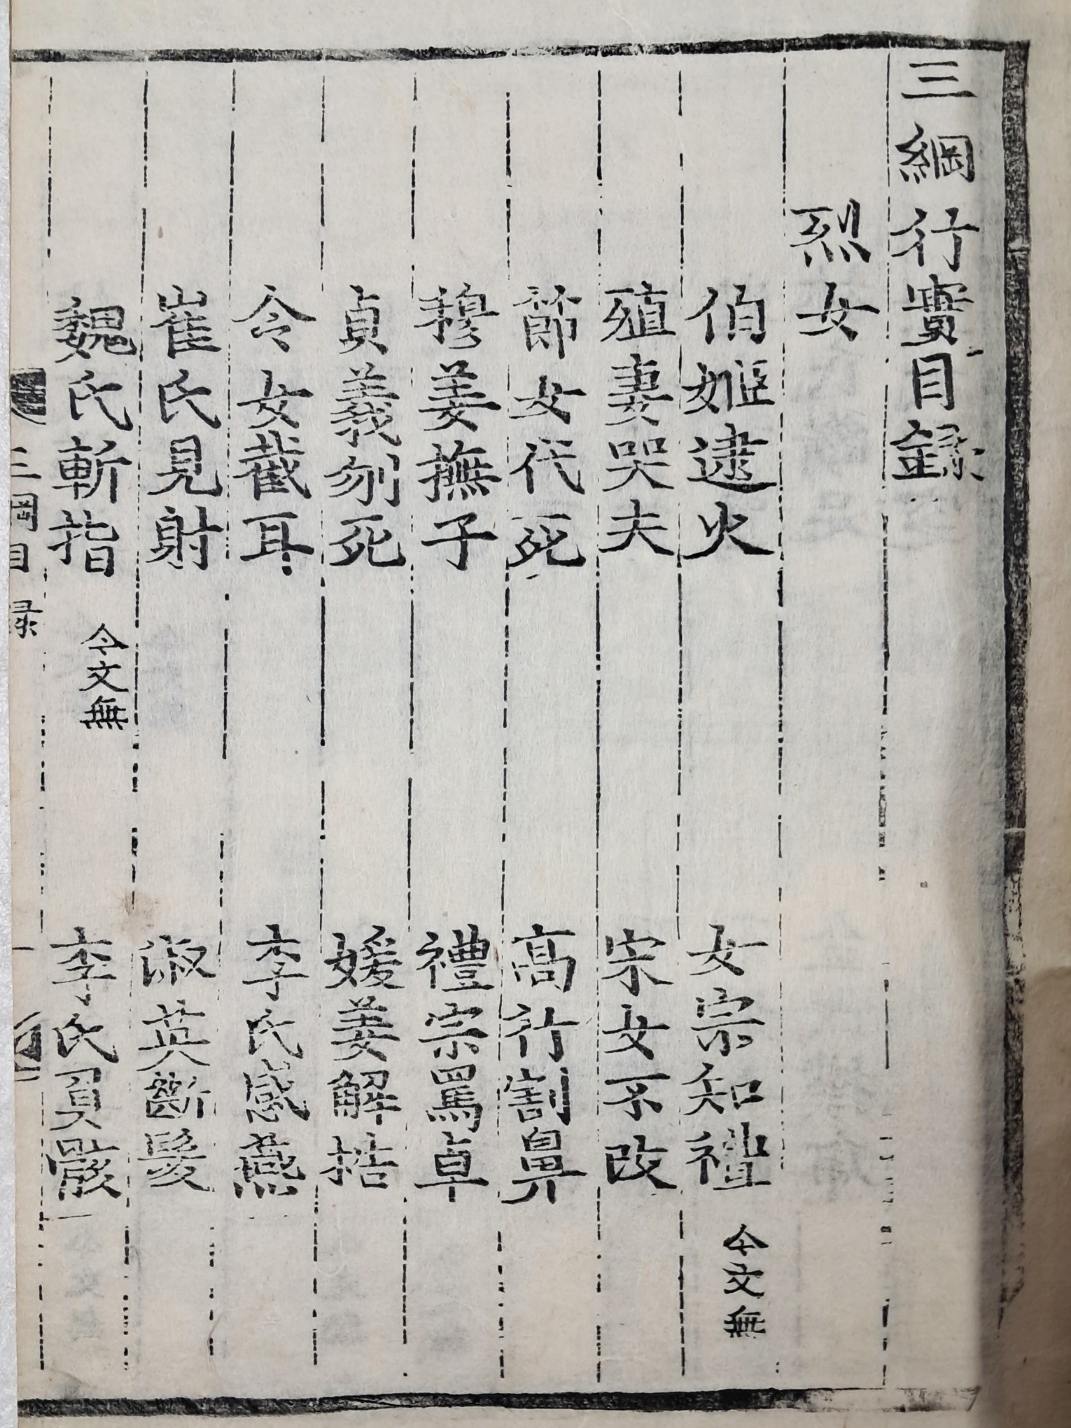 三綱行實目録
烈女
伯姬逮火 女宗知禮 今文無
殖妻哭夫 宋女不改
節女代死 高行割鼻
穆姜撫子 禮宗罵卓
貞義刎死 媛姜解梏
令女截耳 李氏感燕
崔氏見射 淑英斷髮
魏氏斬指 今文無 李氏負骸
三岡目録 一